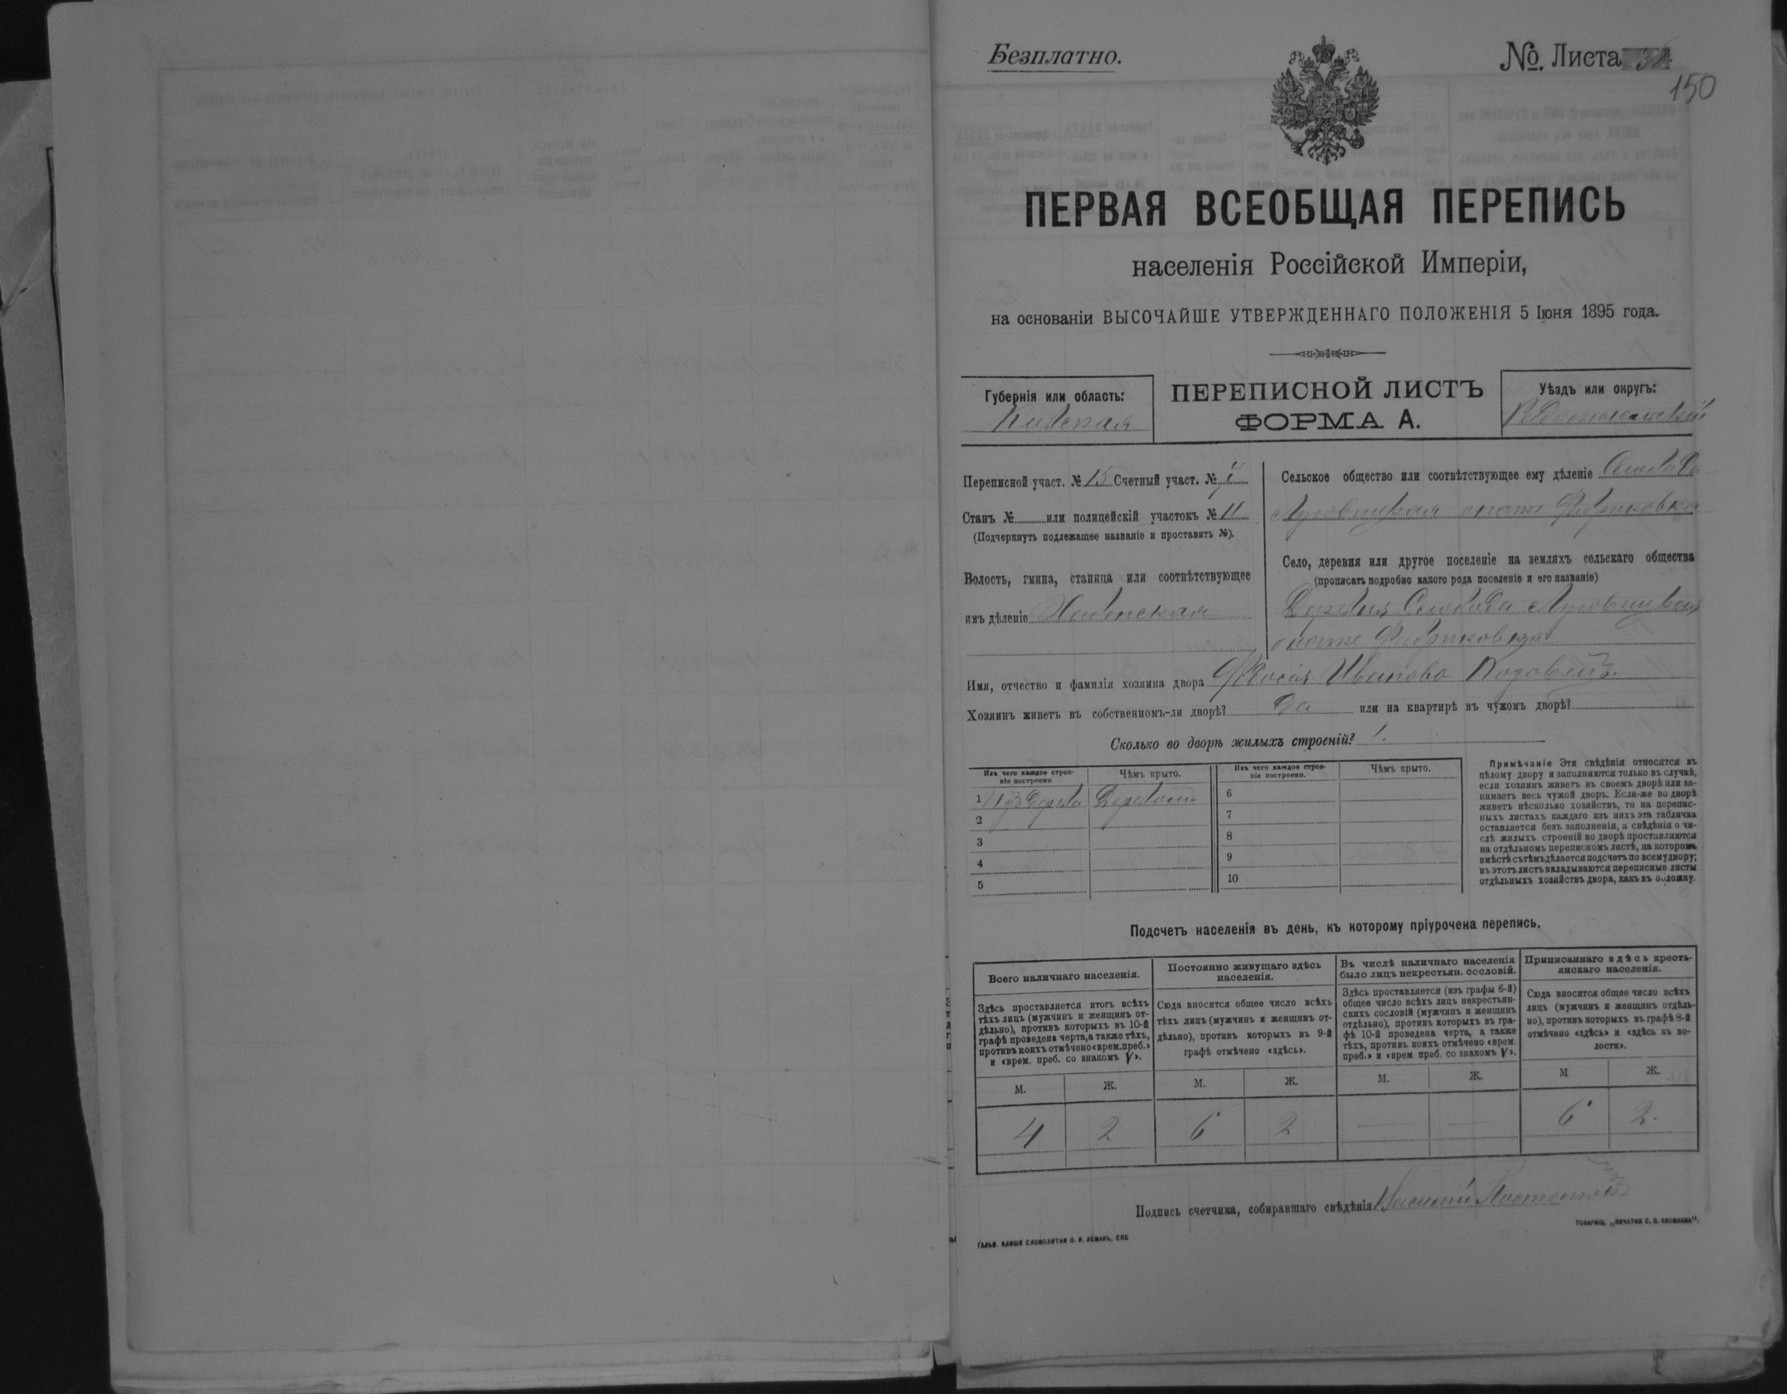 Безплатно.
№ Листа 34
150
ПЕРВАЯ ВСЕОБЩАЯ ПЕРЕПИСЬ
населенія Россійской Имперіи,
на основаніи ВЫСОЧАЙШЕ УТВЕРЖДЕННАГО ПОЛОЖЕНІЯ 5 Іюня 1895 года.
Губернія или область:
Кіевская
ПЕРЕПИСНОЙ ЛИСТЪ
ФОРМА А.
Уѣздъ или округъ:
Переписной участ. № 15 Счетный участ. №
Станъ № или полицейскій участокъ № II
(Подчеркнуть подлежащее названіе и проставить №).
Волость, гмина, станица или соотвѣтствующее
имъ дѣленіе Хабенская
Сельское общество или соотвѣтствующее ему дѣленіе Слобода
Луговицкая онаже Фабриковка
Село, деревня или другое поселеніе на земляхъ сельскаго общества
(прописать подробно какого рода поселеніе и его названіе)
Деревня Слобода Луговицкая
онаже Фабриковка
Имя, отчество и фамилія хозяина двора Иванова
Хозяинъ живетъ въ собственномъ-ли дворѣ? Да или на квартирѣ въ чужомъ дворѣ?
Сколько во дворѣ жилыхъ строеній? 1.
Изъ чего каждое строе-
ніе построено
Чѣмъ крыто.
Изъ чего каждое строе-
ніе построено.
Чѣмъ крыто.
1 Изъ дерева Деревомъ
2
3
4
5
6
7
8
9
10
Примѣчаніе Эти свѣдѣнія относятся къ
цѣлому двору и заполняются только въ случаѣ,
если хозяинъ живетъ въ своемъ дворѣ или за-
нимаетъ весь чужой дворъ. Если-же во дворѣ
живетъ нѣсколько хозяйствъ, то на перепис-
ныхъ листахъ каждаго изъ нихъ эта табличка
оставляется безъ заполненія, а свѣдѣнія о чи-
слѣ жилыхъ строеній во дворѣ проставляются
на отдѣльномъ переписномъ листѣ, на которомъ
вмѣстѣ съ тѣмъ дѣлается подсчетъ по всему двору;
въ этотъ листъ вкладываются переписные листы
отдѣльныхъ хозяйствъ двора, какъ въ обложку.
Подсчетъ населенія въ день, къ которому пріурочена перепись.
Всего наличнаго населенія.
Здѣсь проставляется итогъ всѣхъ
тѣхъ лицъ (мужчинъ и женщинъ от-
дѣльно), противъ которыхъ въ 10-й
графѣ проведена черта, а также тѣхъ,
противъ коихъ отмѣчено «врем. преб.»
и «врем. преб. со знакомъ V».
М. Ж.
4 2
Постоянно живущаго здѣсь
населенія.
Сюда вносится общее число всѣхъ
тѣхъ лицъ (мужчинъ и женщинъ от-
дѣльно), противъ которыхъ въ 9-й
графѣ отмѣчено «здѣсь».
М. Ж.
6 2
Въ числѣ наличнаго населенія
было лицъ некрестьян. сословій.
Здѣсь проставляется (изъ графы 6-й)
общее число всѣхъ лицъ некрестьян-
скихъ сословій (мужчинъ и женщинъ
отдѣльно), противъ которыхъ въ гра-
фѣ 10-й проведена черта, а также
тѣхъ, противъ коихъ отмѣчено «врем.
преб.» и «врем преб. со знакомъ V».
М. Ж.
— —
Приписаннаго здѣсь кресть-
янскаго населенія.
Сюда вносится общее число всѣхъ
лицъ (мужчинъ и женщинъ отдѣль-
но), противъ которыхъ въ графѣ 8-й
отмѣчено «здѣсь» и «здѣсь въ во-
лости».
М Ж.
6 2.
Подпись счетчика, собиравшаго свѣдѣнія Василій
ГАЛЬВ. КЛИШЕ СЛОВОЛИТНИ О. И. ЛЕМАНЪ, СПБ
ТОВАРИЩ. „ПЕЧАТНЯ С. П. ЯКОВЛЕВА“.